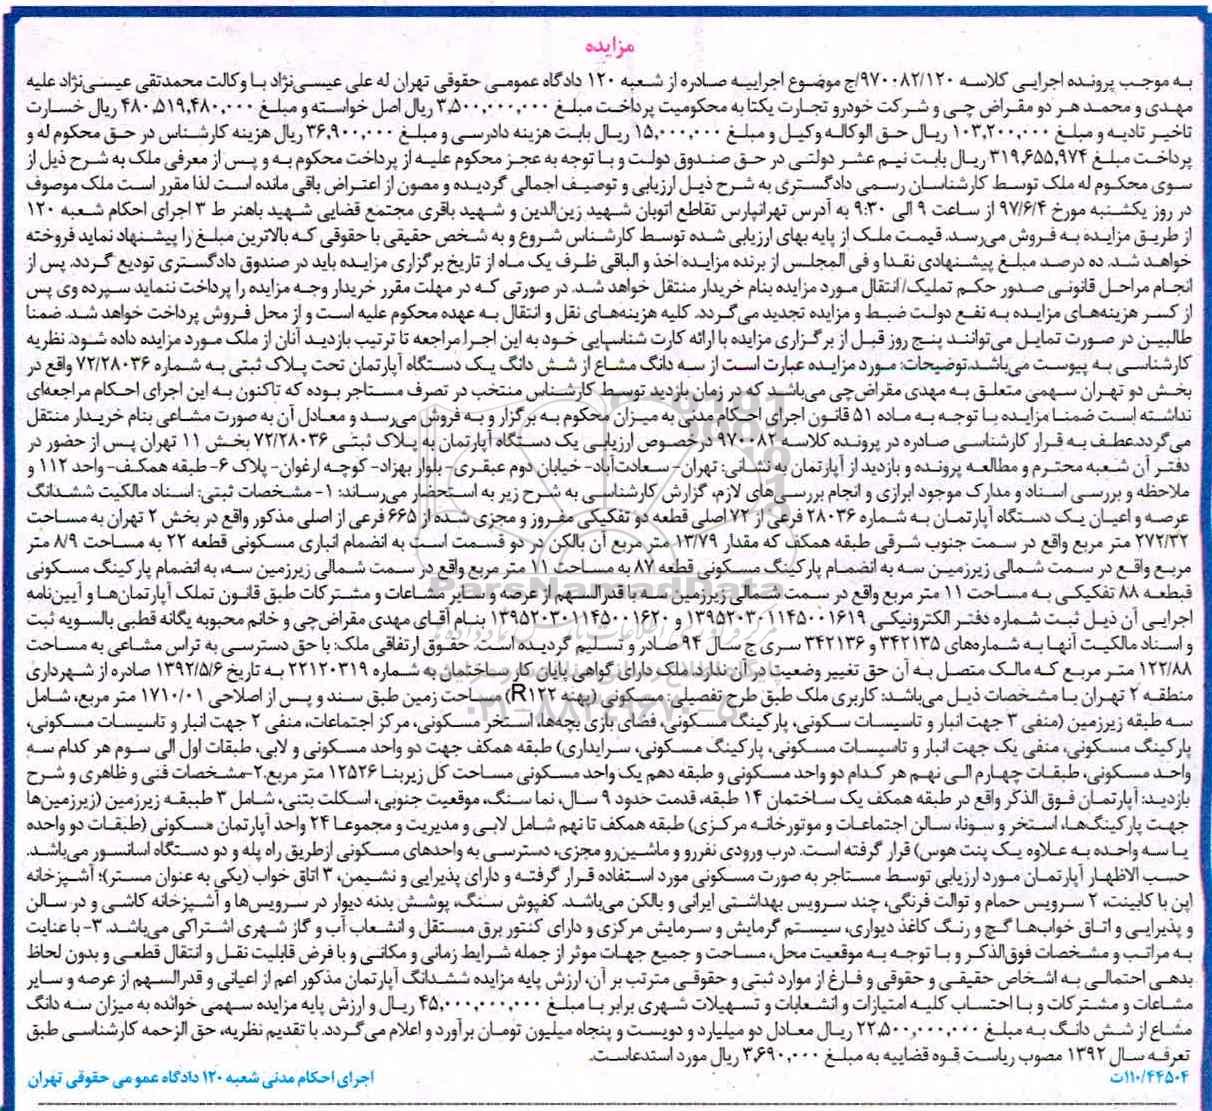 مزایده
به موجب پرونده اجرایی کلاسه ۹۷۰۰۸۲/۱۲۰/ج موضوع اجراییه صادره از شعبه ۱۲۰ دادگاه عمومی حقوقی تهران له علی عیسی‌نژاد با وکالت محمدتقی عیسی‌نژاد علیه
مهدی و محمد هر دو مقراض چی و شرکت خودرو تجارت یکتا به محکومیت پرداخت مبلغ ۳,۵۰۰,۰۰۰,۰۰۰ ریال اصل خواسته و مبلغ ۴۸۰,۵۱۹,۴۸۰,۰۰۰ ریال خسارت
تاخیر تادیه و مبلغ ۱۰۳,۲۰۰,۰۰۰ ریال حق الوکاله وکیل و مبلغ ۱۵,۰۰۰,۰۰۰ ریال بابت هزینه دادرسی و مبلغ ۳۶,۹۰۰,۰۰۰ ریال هزینه کارشناس در حق محکوم له و
پرداخت مبلغ ۳۱۹,۶۵۵,۹۷۴ ریال بابت نیم عشر دولتی در حق صندوق دولت و با توجه به عجز محکوم علیه از پرداخت محکوم به و پس از معرفی ملک به شرح ذیل از
سوی محکوم له ملک توسط کارشناسان رسمی دادگستری به شرح ذیل ارزیابی و توصیف اجمالی گردیده و مصون از اعتراض باقی مانده است لذا مقرر است ملک موصوف
در روز یکشنبه مورخ ۹۷/۶/۴ از ساعت ۹ الی ۹:۳۰ به آدرس تهرانپارس تقاطع اتوبان شهید زین‌الدین و شهید باقری مجتمع قضایی شهید باهنر ط ۳ اجرای احکام شعبه ۱۲۰
از طریق مزایده به فروش می‌رسد. قیمت ملک از پایه بهای ارزیابی شده توسط کارشناس شروع و به شخص حقیقی با حقوقی که بالاترین مبلغ را پیشنهاد نماید فروخته
خواهد شد. ده درصد مبلغ پیشنهادی نقدا و فی المجلس از برنده مزایده اخذ و الباقی ظرف یک ماه از تاریخ برگزاری مزایده باید در صندوق دادگستری تودیع گردد. پس از
انجام مراحل قانونی صدور حکم تملیک/انتقال مورد مزایده بنام خریدار منتقل خواهد شد. در صورتی که در مهلت مقرر خریدار وجه مزایده را پرداخت ننماید سپرده وی پس
از کسر هزینه‌های مزایده به نفع دولت ضبط و مزایده تجدید می‌گردد. کلیه هزینه‌های نقل و انتقال به عهده محکوم علیه است و از محل فروش پرداخت خواهد شد. ضمنا
طالبین در صورت تمایل می‌توانند پنج روز قبل از برگزاری مزایده با ارائه کارت شناسایی خود به این اجرا مراجعه تا ترتیب بازدید آنان از ملک مورد مزایده داده شود. نظریه
کارشناسی به پیوست می‌باشد.توضیحات: مورد مزایده عبارت است از سه دانگ مشاع از شش دانگ یک دستگاه آپارتمان تحت پلاک ثبتی به شماره ۷۲/۲۸۰۳۶ واقع در
بخش دو تهران سهمی متعلق به مهدی مقراض‌چی می‌باشد که در زمان بازدید توسط کارشناس منتخب در تصرف مستاجر بوده که تاکنون به این اجرای احکام مراجعه‌ای
نداشته است ضمنا مزایده با توجه به ماده ۵۱ قانون اجرای احکام مدنی به میزان محکوم به برگزار و به فروش می‌رسد و معادل آن به صورت مشاعی بنام خریدار منتقل
می‌گردد.عطف به قرار کارشناسی صادره در پرونده کلاسه ۹۷۰۰۸۲ درخصوص ارزیابی یک دستگاه آپارتمان به پلاک ثبتی ۷۲/۲۸۰۳۶ بخش ۱۱ تهران پس از حضور در
دفتر آن شعبه محترم و مطالعه پرونده و بازدید از آپارتمان به نشانی: تهران- سعادت‌آباد- خیابان دوم عبقری- بلوار بهزاد- کوچه ارغوان- پلاک ۶- طبقه همکف- واحد ۱۱۲ و
ملاحظه و بررسی اسناد و مدارک موجود ابرازی و انجام بررسی‌های لازم، گزارش کارشناسی به شرح زیر به استحضار می‌رساند: ۱- مشخصات ثبتی: اسناد مالکیت ششدانگ
عرصه و اعیان یک دستگاه آپارتمان به شماره ۲۸۰۳۶ فرعی از ۷۲ اصلی قطعه دو تفکیکی مفروز و مجزی شده از ۶۶۵ فرعی از اصلی مذکور واقع در بخش ۲ تهران به مساحت
۲۷۲/۳۲ متر مربع واقع در سمت جنوب شرقی طبقه همکف که مقدار ۱۳/۷۹ متر مربع آن بالکن در دو قسمت است به انضمام انباری مسکونی قطعه ۲۲ به مساحت ۸/۹ متر
مربع واقع در سمت شمالی زیرزمین سه به انضمام پارکینگ مسکونی قطعه ۸۷ به مساحت ۱۱ متر مربع واقع در سمت شمالی زیرزمین سه، به انضمام پارکینگ مسکونی
قطعه ۸۸ تفکیکی به مساحت ۱۱ متر مربع واقع در سمت شمالی زیرزمین سه با قدرالسهم از عرصه و سایر مشاعات و مشترکات طبق قانون تملک آپارتمان‌ها و آیین‌نامه
اجرایی آن ذیل ثبت شماره دفتر الکترونیکی ۱۳۹۵۲۰۳۰۱۱۴۵۰۰۱۶۱۹ و ۱۳۹۵۲۰۳۰۱۱۴۵۰۰۱۶۲۰ بنام آقای مهدی مقراض‌چی و خانم محبوبه یگانه قطبی بالسویه ثبت
و اسناد مالکیت آنها به شماره‌های ۳۴۲۱۳۵ و ۳۴۲۱۳۶ سری ج سال ۹۴ صادر و تسلیم گردیده است. حقوق ارتفاقی ملک: با حق دسترسی به تراس مشاعی به مساحت
۱۲۲/۸۸ متر مربع که مالک متصل به آن حق تغییر وضعیت در آن ندارد.ملک دارای گواهی پایان کار ساختمان به شماره ۲۲۱۲۰۳۱۹ به تاریخ ۱۳۹۲/۵/۶ صادره از شهرداری
منطقه ۲ تهران با مشخصات ذیل می‌باشد: کاربری ملک طبق طرح تفصیلی: مسکونی (پهنه R۱۲۲) مساحت زمین طبق سند و پس از اصلاحی ۱۷۱۰/۰۱ متر مربع، شامل
سه طبقه زیرزمین (منفی ۳ جهت انبار و تاسیسات سکونی، پارکینگ مسکونی، فضای بازی بچه‌ها، استخر مسکونی، مرکز اجتماعات، منفی ۲ جهت انبار و تاسیسات مسکونی،
پارکینگ مسکونی، منفی یک جهت انبار و تاسیسات مسکونی، پارکینگ مسکونی، سرایداری) طبقه همکف جهت دو واحد مسکونی و لابی، طبقات اول الی سوم هر کدام سه
واحد مسکونی، طبقات چهارم الی نهم هر کدام دو واحد مسکونی و طبقه دهم یک واحد مسکونی مساحت کل زیربنا ۱۲۵۲۶ متر مربع.۲-مشخصات فنی و ظاهری و شرح
بازدید: آپارتمان فوق الذکر واقع در طبقه همکف یک ساختمان ۱۴ طبقه، قدمت حدود ۹ سال، نما سنگ، موقعیت جنوبی، اسکلت بتنی، شامل ۳ طبقه زیرزمین (زیرزمین‌ها
جهت پارکینگ‌ها، استخر و سونا، سالن اجتماعات و موتورخانه مرکزی) طبقه همکف تا نهم شامل لابی و مدیریت و مجموعا ۲۴ واحد آپارتمان مسکونی (طبقات دو واحده
یا سه واحده به علاوه یک پنت هوس) قرار گرفته است. درب ورودی نفررو و ماشین‌رو مجزی، دسترسی به واحدهای مسکونی ازطریق راه پله و دو دستگاه آسانسور می‌باشد.
حسب الاظهار آپارتمان مورد ارزیابی توسط مستاجر به صورت مسکونی مورد استفاده قرار گرفته و دارای پذیرایی و نشیمن، ۳ اتاق خواب (یکی به عنوان مستر)؛ آشپزخانه
اپن با کابینت، ۲ سرویس حمام و توالت فرنگی، چند سرویس بهداشتی ایرانی و بالکن می‌باشد. کفپوش سنگ، پوشش بدنه دیوار در سرویس‌ها و آشپزخانه کاشی و در سالن
و پذیرایی و اتاق خواب‌ها گچ و رنگ کاغذ دیواری، سیستم گرمایش و سرمایش مرکزی و دارای کنتور برق مستقل و انشعاب آب و گاز شهری اشتراکی می‌باشد. ۳- با عنایت
به مراتب و مشخصات فوق‌الذکر و با توجه به موقعیت محل، مساحت و جمیع جهات موثر از جمله شرایط زمانی و مکانی و با فرض قابلیت نقل و انتقال قطعی و بدون لحاظ
بدهی احتمالی به اشخاص حقیقی و حقوقی و فارغ از موارد ثبتی و حقوقی مترتب بر آن، ارزش پایه مزایده ششدانگ آپارتمان مذکور اعم از اعیانی و قدرالسهم از عرصه و سایر
مشاعات و مشترکات و با احتساب کلیه امتیازات و انشعابات و تسهیلات شهری برابر با مبلغ ۴۵,۰۰۰,۰۰۰,۰۰۰ ریال و ارزش پایه مزایده سهمی خوانده به میزان سه دانگ
مشاع از شش دانگ به مبلغ ۲۲,۵۰۰,۰۰۰,۰۰۰ ریال معادل دو میلیارد و دویست و پنجاه میلیون تومان برآورد و اعلام می‌گردد. با تقدیم نظریه، حق الزحمه کارشناسی طبق
تعرفه سال ۱۳۹۲ مصوب ریاست قوه قضاییه به مبلغ ۳,۶۹۰,۰۰۰ ریال مورد استدعاست.
۱۱۰/۴۴۵۰۴ت
اجرای احکام مدنی شعبه ۱۲۰ دادگاه عمومی حقوقی تهران
ParsNamadData
۰۲۱-۸۸۳۴۹۶۷۰-۵